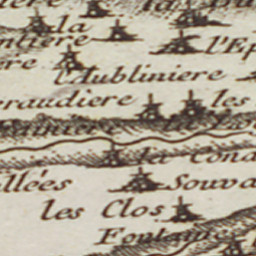 la
l'Ep
re
l'Aubliniere
eraudiere les
la Cond
llées Souva
les Clos
Fontai